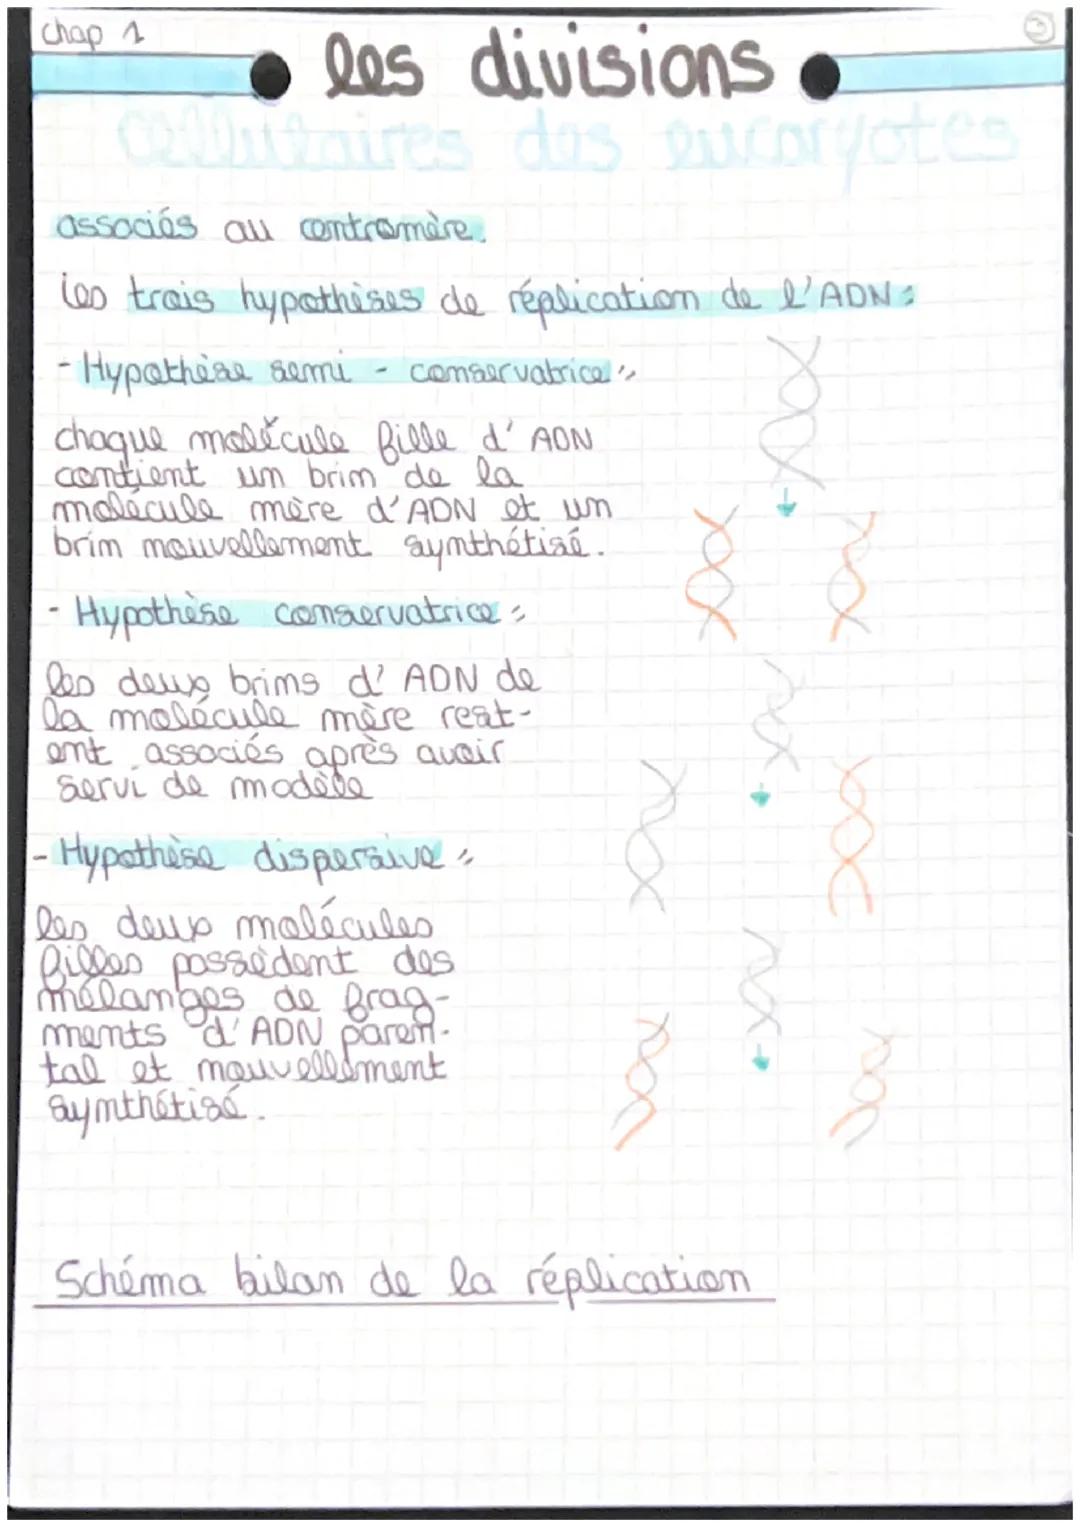 chap 1
les divisions
cellulaires des eucaryotes
associés au centromère.
les trois hypothèses de réplication de l'ADN :
- Hypothèse semi - conservatrice :
chaque molécule fille d'ADN
contient un brin de la
molécule mère d'ADN et un
brin nouvellement synthétisé.
- Hypothèse conservatrice :
les deux brins d'ADN de
la molécule mère rest-
ent associés après avoir
servi de modèle
- Hypothèse dispersive :
les deux molécules
filles possèdent des
mélanges de frag-
ments d'ADN paren-
tal et nouvellement
synthétisé.
Schéma bilan de la réplication